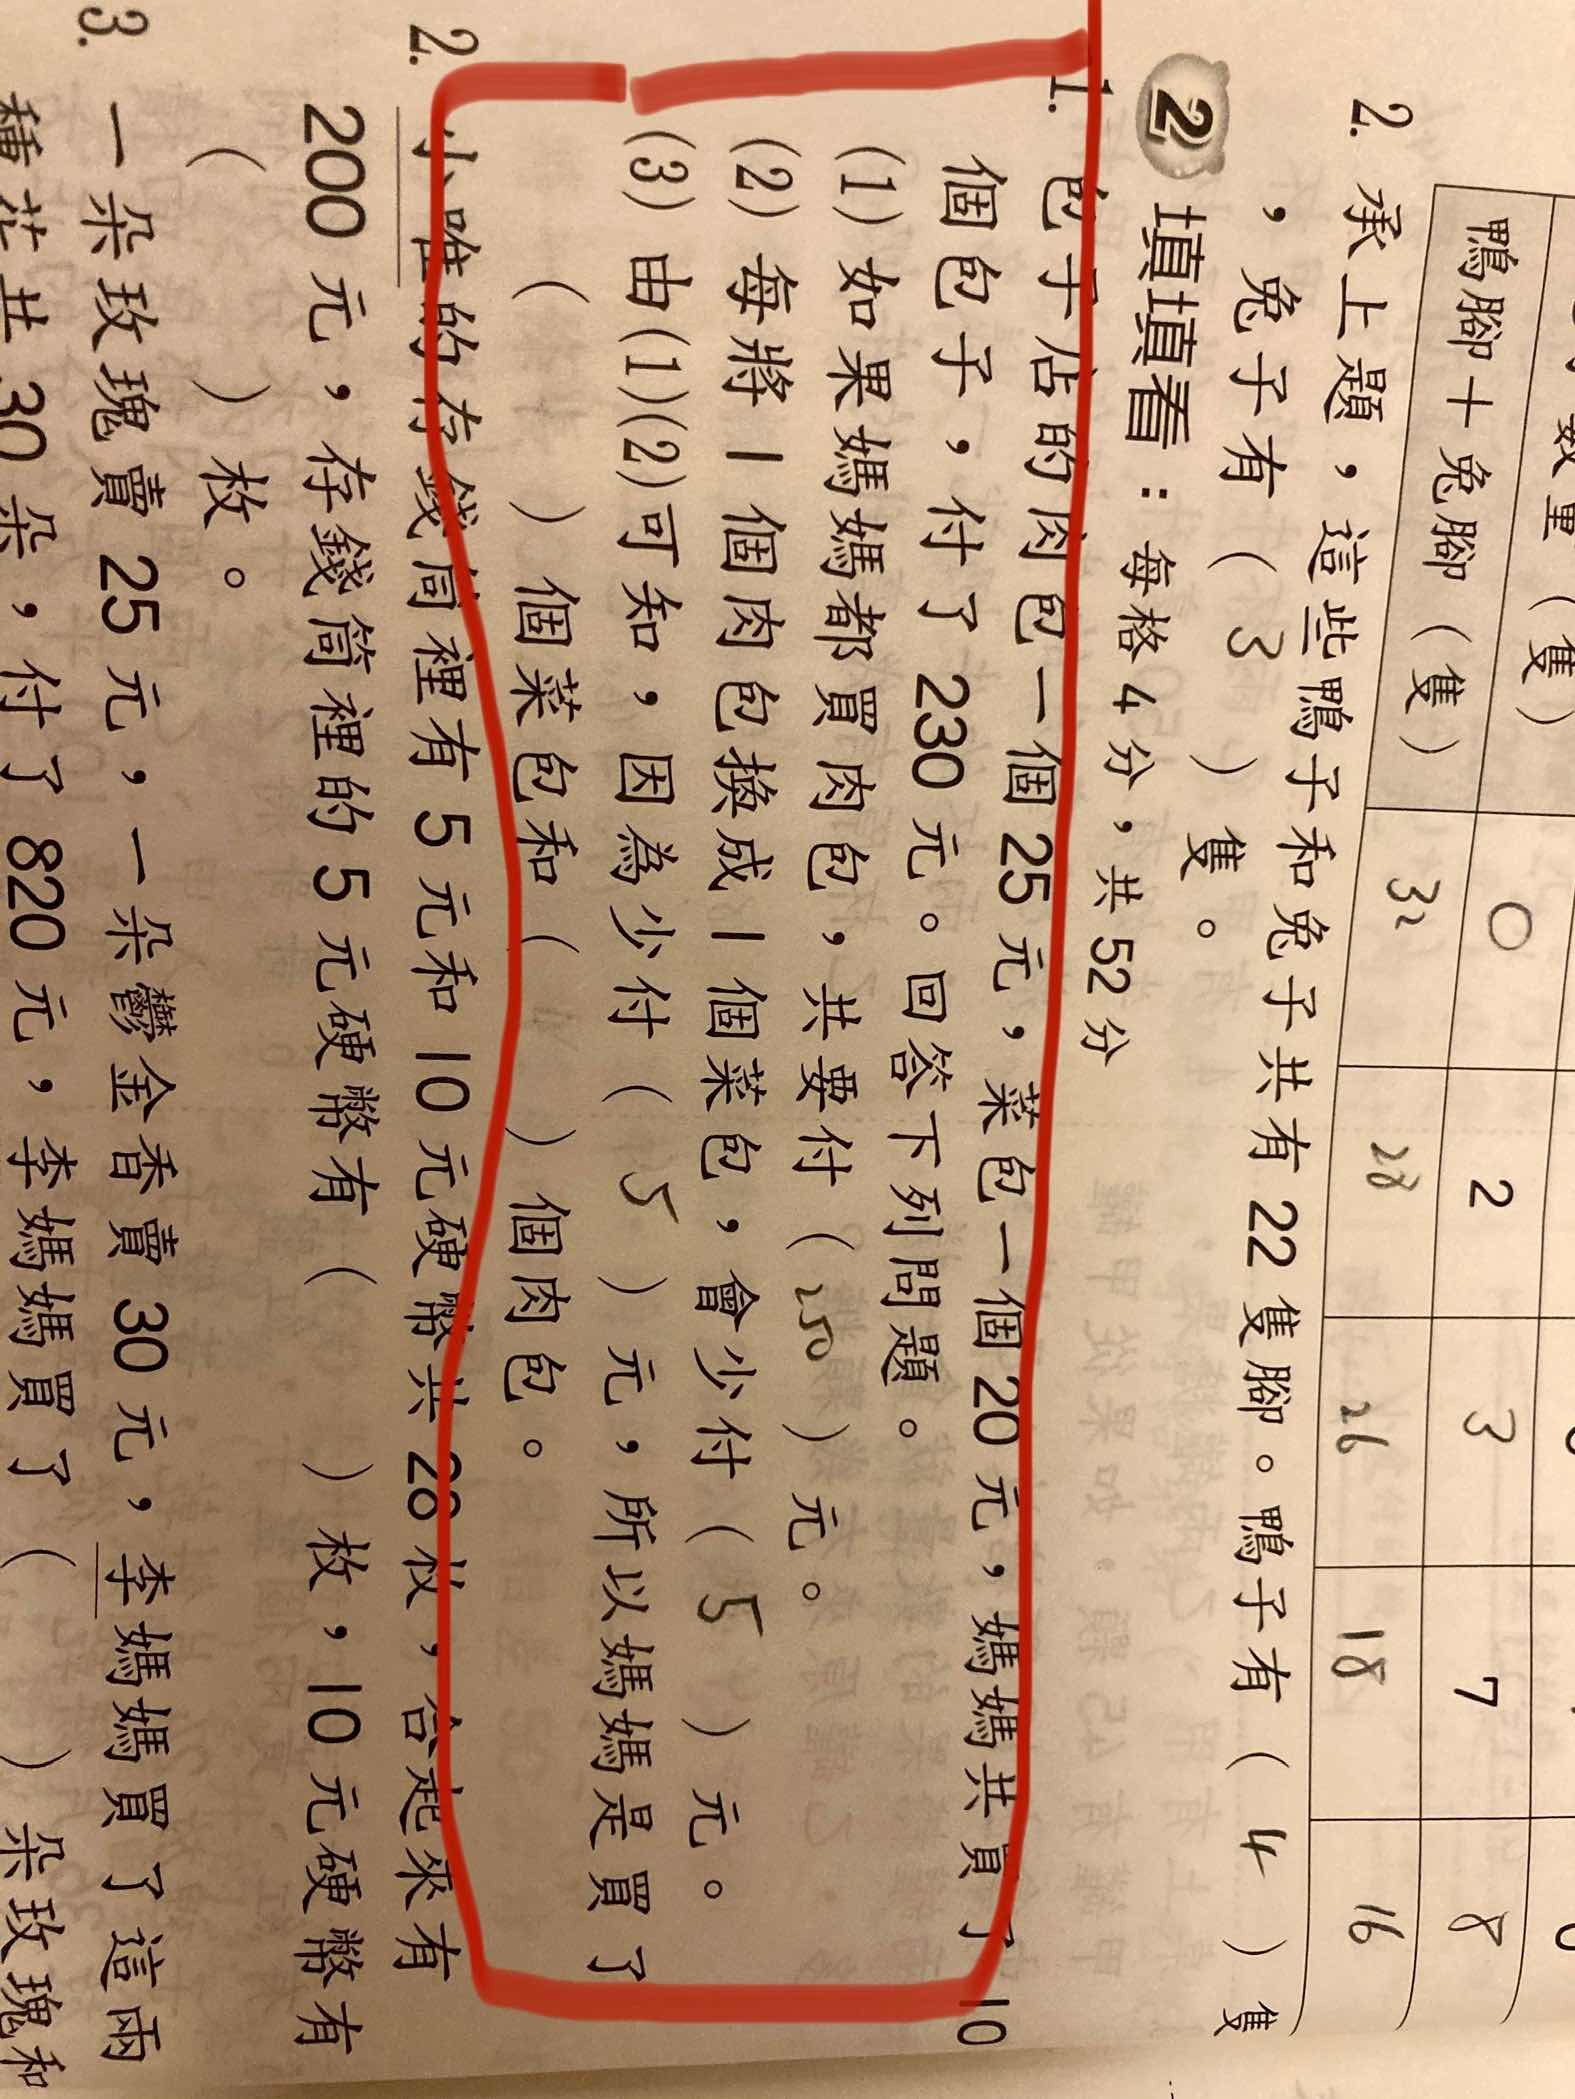 鴨腳＋兔腳（隻） 32 28 26 18 16
0 2 3 7 8
2. 承上題，這些鴨子和兔子共有 22 隻腳。鴨子有（ 4 ）隻
，兔子有（ 3 ）隻。
2 填填看：每格 4 分，共 52 分
1. 包子店的肉包一個 25 元，菜包一個 20 元，媽媽共買了 10
個包子，付了 230 元。回答下列問題。
(1) 如果媽媽都買肉包，共要付（ 250 ）元。
(2) 每將 1 個肉包換成 1 個菜包，會少付（ 5 ）元。
(3) 由(1)(2)可知，因為少付（ 5 ）元，所以媽媽是買了
（ ）個菜包和（ ）個肉包。
2. 小唯的存錢筒裡有 5 元和 10 元硬幣共 28 枚，合起來有
200 元，存錢筒裡的 5 元硬幣有（ ）枚，10 元硬幣有
（ ）枚。
3. 一朵玫瑰賣 25 元，一朵鬱金香賣 30 元，李媽媽買了這兩
種花共 30 朵，付了 820 元，李媽媽買了（ ）朵玫瑰和